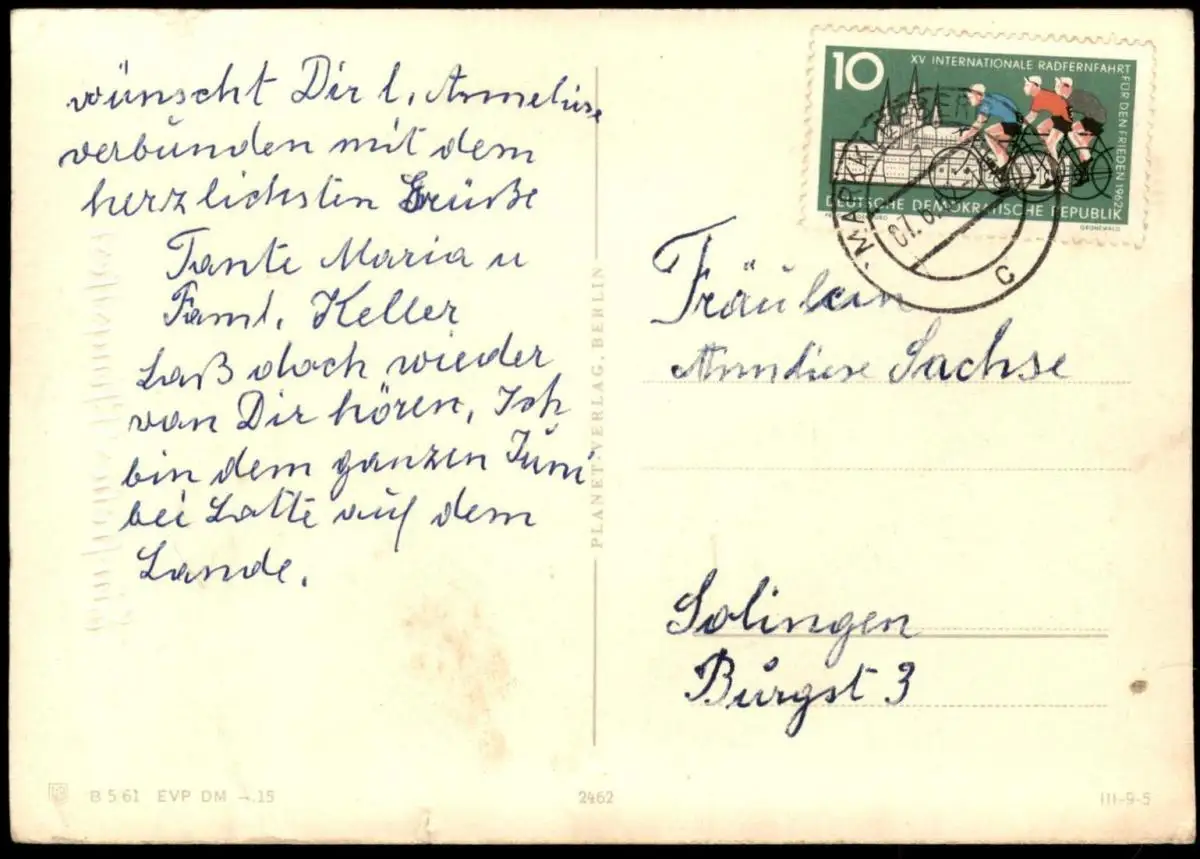 wünscht Dir l. Anneliese
verbunden mit dem
herzlichsten Grüße
Tante Maria u
Faml. Keller
Laß doch wieder
von Dir hören, Ich
bin dem ganzen Juni
bei Lotte auf dem
Lande.
PLANET-VERLAG, BERLIN
10
XV INTERNATIONALE RADFERNFAHRT
FÜR DEN FRIEDEN 1962
DEUTSCHE DEMOKRATISCHE REPUBLIK
GRÜNEWALD
07. 6.
C
Fräulein
Anneliese Sachse
Solingen
Burgst 3
B 5/61 EVP DM -.15
2462
III-9-5